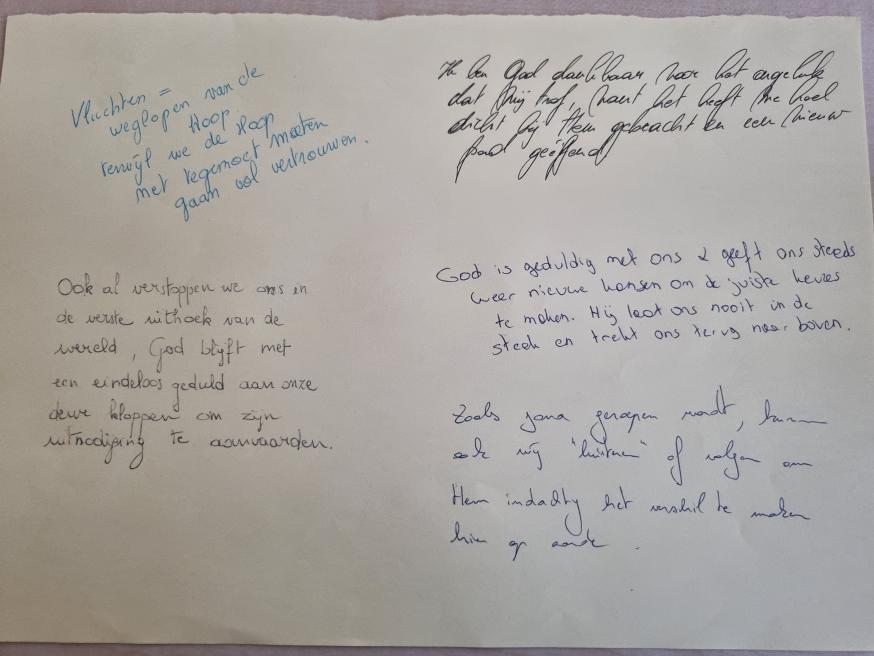 Vluchten =
weglopen van de
Hoop
terwijl we de Hoop
met tegemoet moeten
gaan vol vertrouwen.
Ik ben God dankbaar voor het ongeluk
dat mij trof, want het heeft me heel
dicht bij Hem gebracht en een nieuw
pad geöffend
Ook al verstoppen we ons in
de verste uithoek van de
wereld, God blijft met
een eindeloos geduld aan onze
deur kloppen om zijn
uitnodiging te aanvaarden.
God is geduldig met ons & geeft ons steeds
weer nieuwe kansen om de juiste keuzes
te maken. Hij laat ons nooit in de
steek en trekt ons terug naar boven.
Zoals Jona geroepen wordt, kunnen
ook wij "luisteren" of volgen om
Hem indachtig het verschil te maken
hier op aarde.